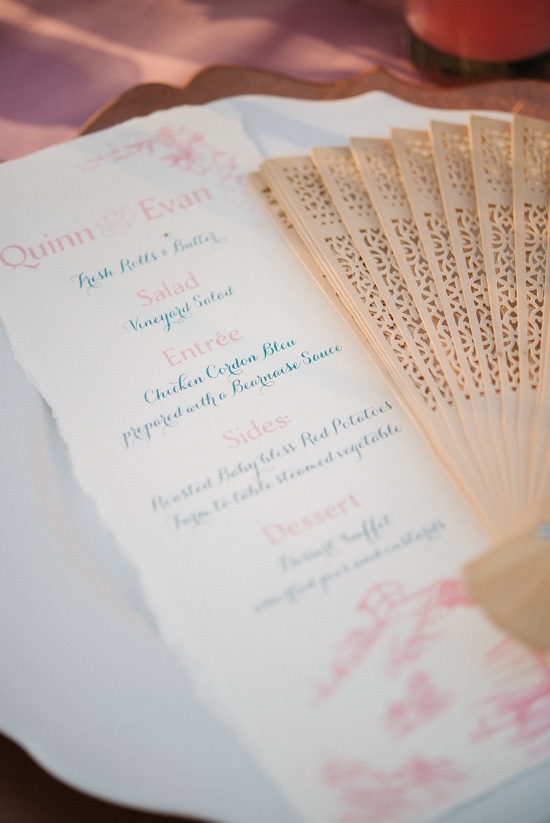 Quinn & Evan
Fresh Rolls & Butter
Salad
Vineyard Salad
Entrée
Chicken Cordon Bleu
prepared with a Bearnaise Sauce
Sides:
Roasted Baby bliss Red Potatoes
Farm to table steamed vegetable
Dessert
Dessert Buffet
and custards